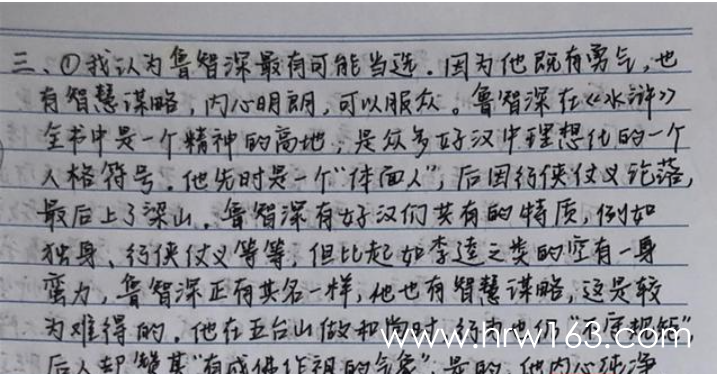 三、①我认为鲁智深最有可能当选.因为他既有勇气,也
有智慧谋略,内心明朗,可以服众。鲁智深在《水浒》
全书中是一个精神的高地,是众多好汉中理想化的一个
人格符号.他先时是一个“体面人”,后因行侠仗义沦落,
最后上了梁山.鲁智深有好汉们共有的特质,例如
独身、行侠仗义等等,但比起如李逵之类的空有一身
蛮力,鲁智深正有其名一样,他也有智慧谋略,这是较
为难得的.他在五台山做和尚时,行
后人却赞其“有成佛作祖的气象”.是的,他内心纯净
www.hrw163.com